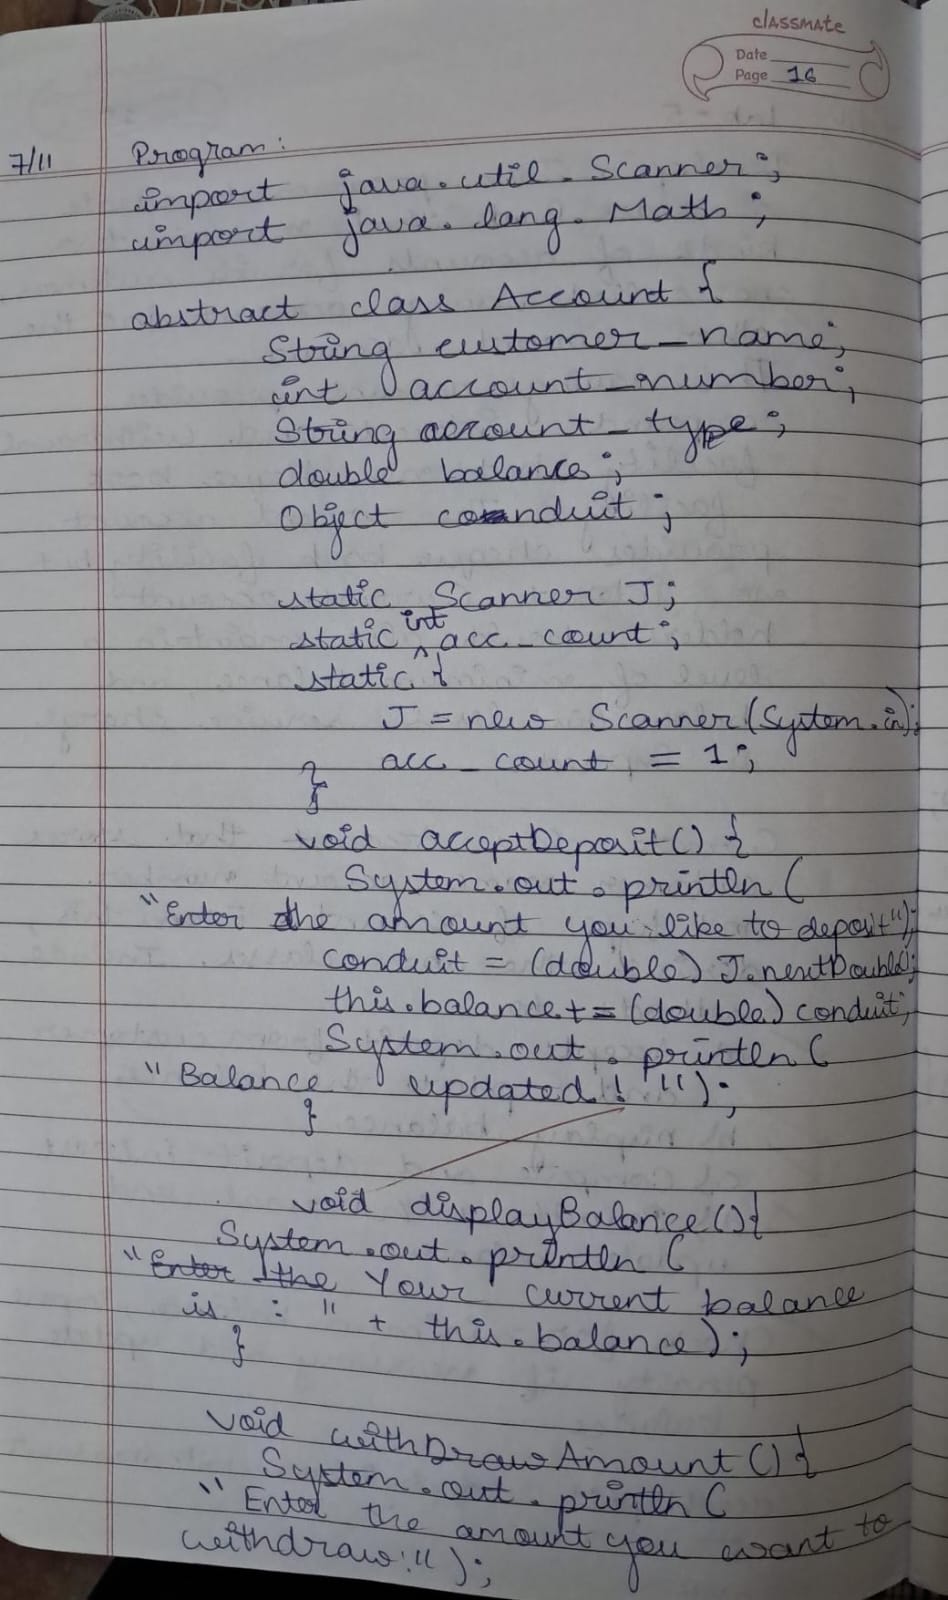 classmate
Date
Page 16
7/11 Program:
import java.util.Scanner;
import java.lang.Math;
abstract class Account {
String customer_name;
int account_number;
String account_type;
double balance;
Object conduit;
static Scanner J;
static int acc_count;
static {
J = new Scanner(System.in);
acc_count = 1;
}
void acceptDeposit() {
System.out.println(
"Enter the amount you like to deposit");
conduit = (double) J.nextDouble();
this.balance += (double) conduit;
System.out.println(
"Balance updated!");
}
void displayBalance(){
System.out.println(
"Enter the Your current balance
is : " + this.balance);
}
void withDrawAmount() {
System.out.println(
"Enter the amount you want to
withdraw:");